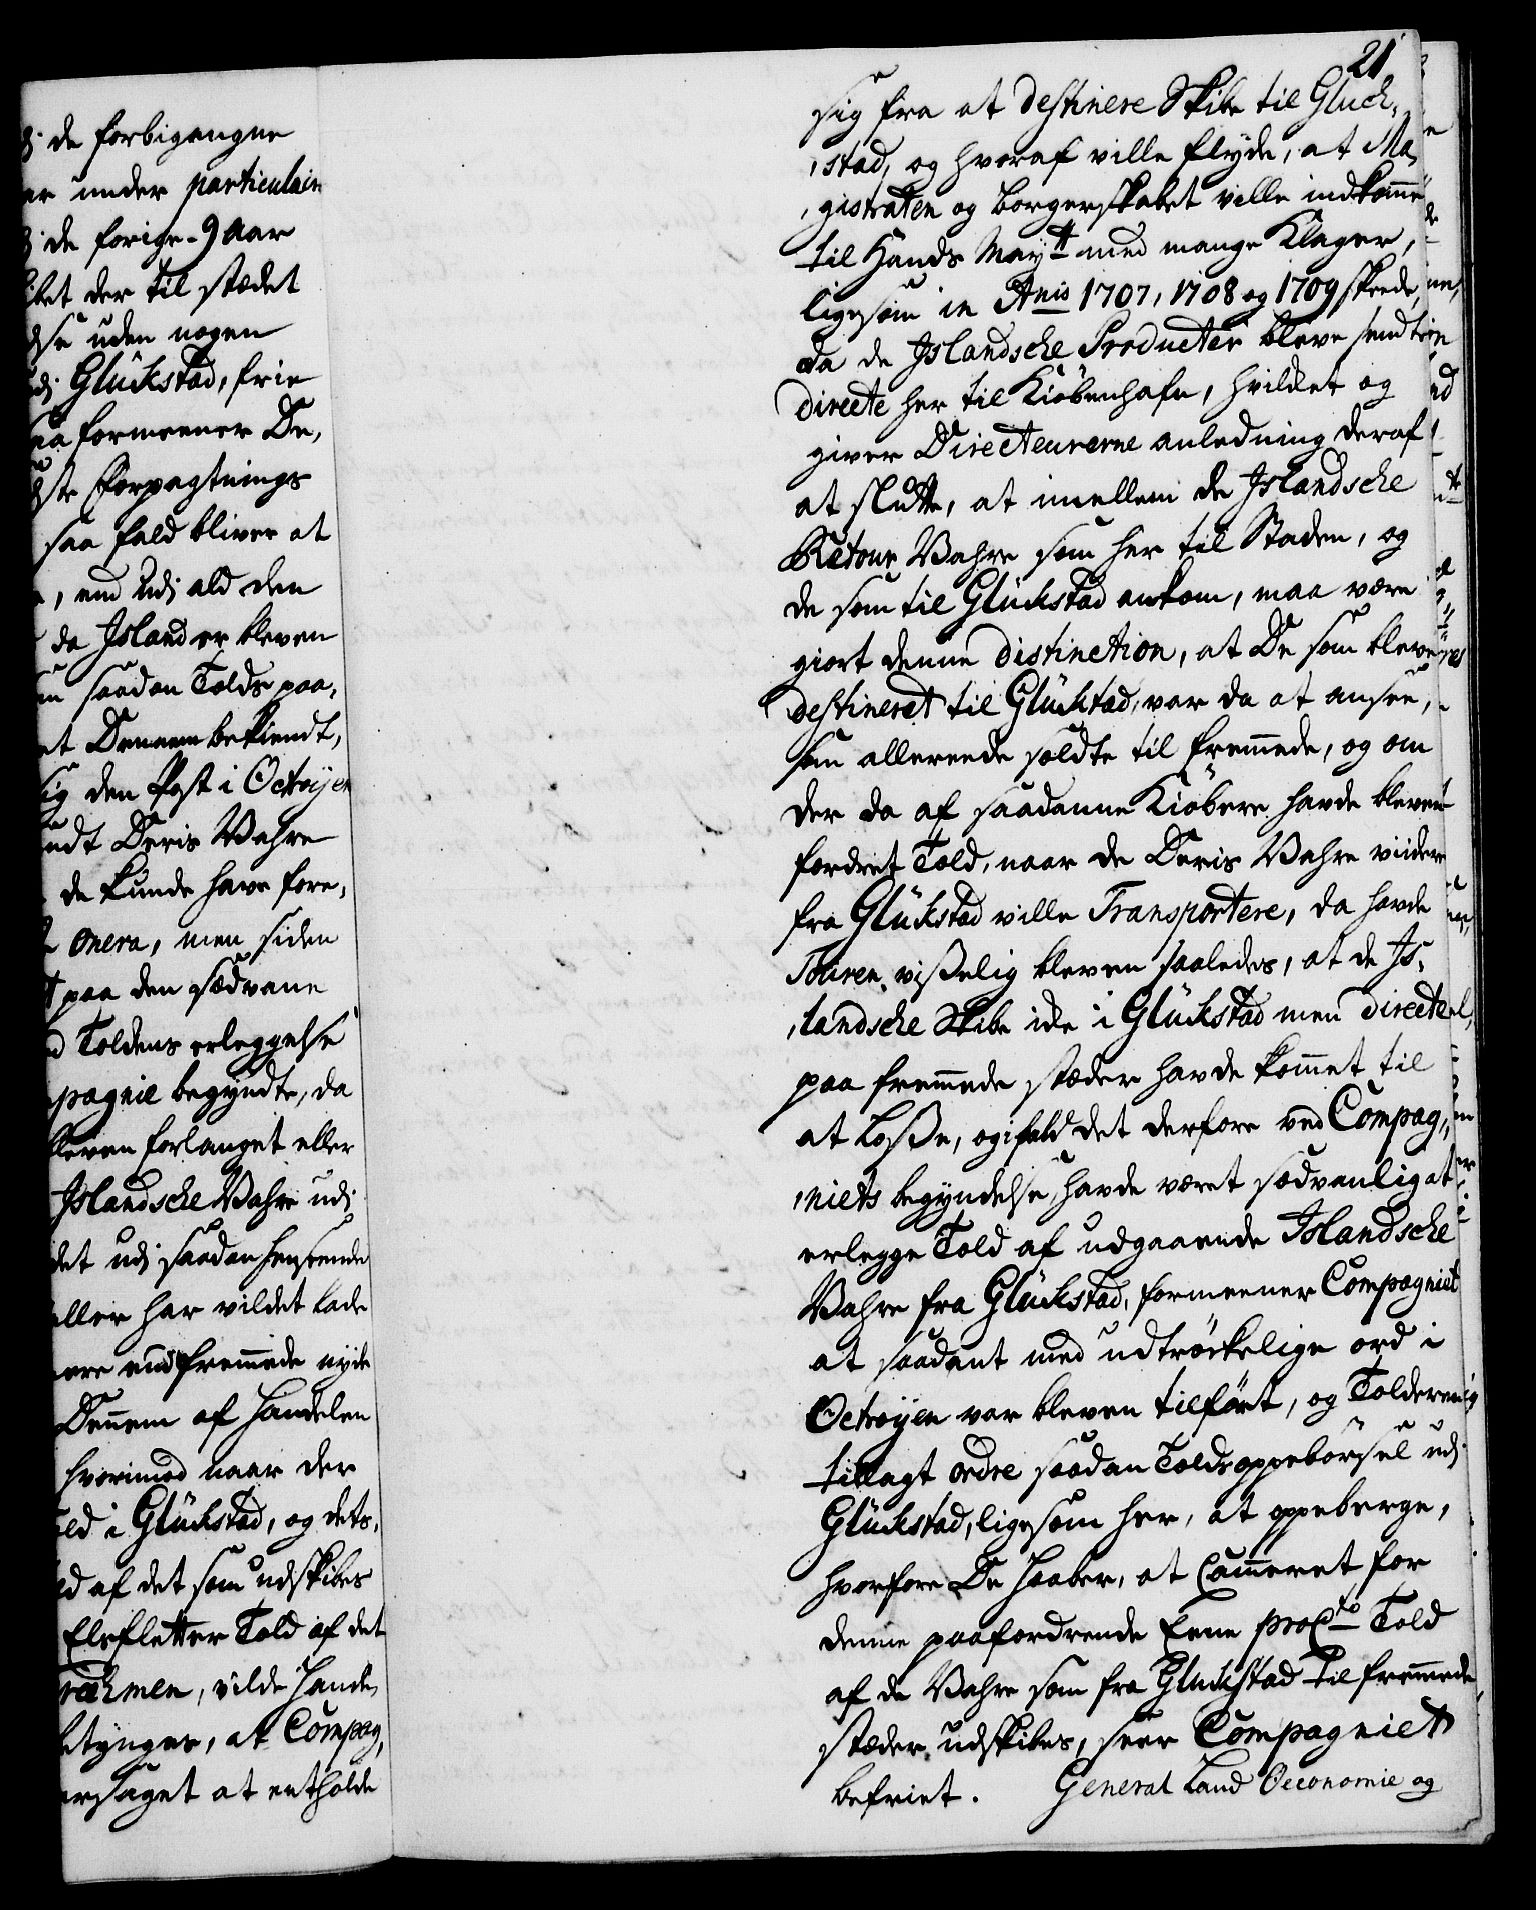 j de forbigangne
er under particulair
j de forige 9 Aar
ibet der til stædet
lse uden nogen
udj Glückstad, frie
aa formeener De,
ste Forpagtnings
saa fald bliver at
, end udj ald den
da Jsland er bleven
en saadan Tolds paa,
et Dennem bekiendt,
sig den Post i Octroyen
endt Deris Vahre
de kunde have fore,
onera, men siden
t paa den sædvane
d Toldens erleggelse
pagnie begyndte, da
bleven forlanget eller
Jslandsche Vahre udj
det udj saadan henseende
eller har vildet lade
mere end fremmede nyde
Dennem af Handelen
hvorimod naar der
old i Glückstad, og dets,
ld af det som udskibes
Elsfletter Told af det
ræhmen, vilde Hande,
betynges, at Compag,
orsaget at entholde
21
sig fra at destinere Skibe til Glück,
,stad, og hvoraf ville flyde, at Ma,
,gistraten og Borgerskabet ville indkomme
til Hands Maytt med mange Klager,
ligesom in Anis 1707, 1708 og 1709 skeede,
da de Jslandsche Producter bleve sendt
directe her til Kiöbenhafn, hvildet og
giver Directeurerne anledning deraf
at slutte, at imellem de Jslandsche
Retour Vahre som her til Staden, og
de som til Glückstad ankom, maa være
giort denne distinction, at De som bleve
destineret til Glückstad, var da at ansee,
som allereede soldte til fremmede, og om
der da af saadanne Kiöbere havde bleven
fordret Told, naar de Deris Vahre viidere
fra Glückstad ville Transportere, da havde
Touren visselig bleven saaledes, at de Js,
,landsche Skibe icke i Glückstad men directe
paa fremmede stæder havde kommet til
at Losse, og ifald det derfore ved Compag,,
,niets begyndelse, havde været sædvanlig at
erlegge Told af udgaaende Jslandsche
Vahre fra Glückstad, formeener Compagniet
at saadant med udtröckelige ord i
Octroyen var bleven tilfört, og Tolderen
tillagt ordre saadan Tolds oppebörsel udj
Glückstad, ligesom her, at oppeberge,
hvorfore De Haaber, at Cammeret for
denne paafordrende Eene proCto Told
af de Vahre som fra Glückstad til fremmede
stæder udskibes, seer Compagniet
befriet. General Land Oeconomie og